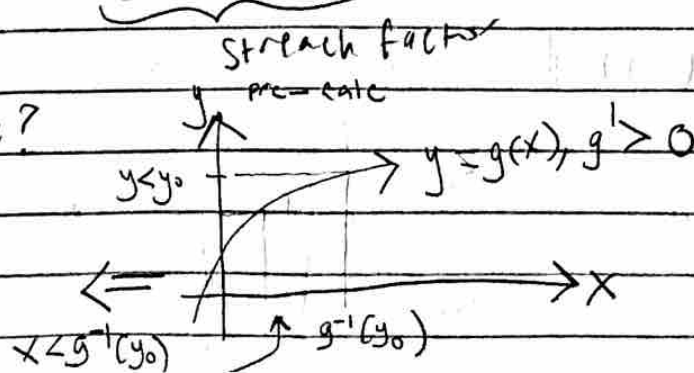 Streach factor
pre-calc
?
y
y = g(x), g' > 0
y<y₀
<=
x
x<g⁻¹(y₀)
g⁻¹(y₀)